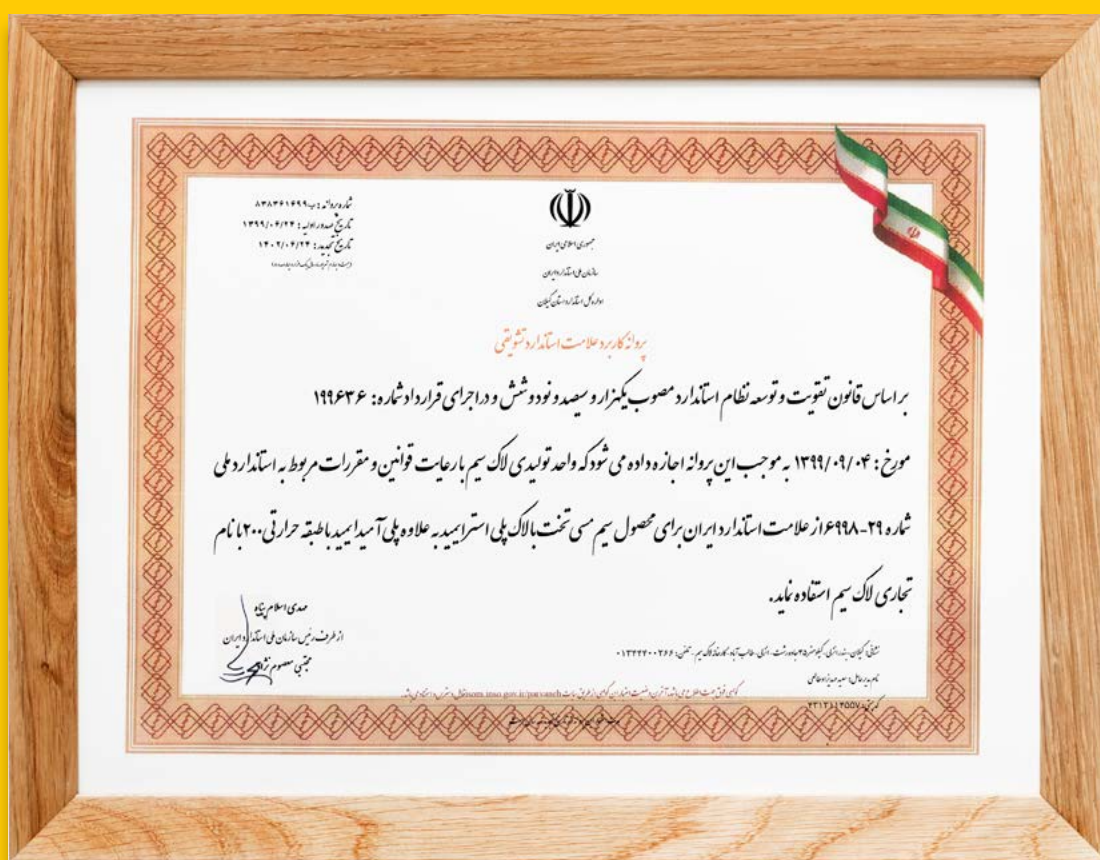 شماره پروانه: ب-۸۳۸۳۶۱۶۹۹
تاریخ صدور اولیه: ۱۳۹۹/۰۶/۲۴
تاریخ تجدید: ۱۴۰۲/۰۶/۲۴
جمهوری اسلامی ایران
سازمان ملی استاندارد ایران
اداره کل استاندارد استان گیلان
پروانه کاربرد علامت استاندارد تشویقی
بر اساس قانون تقویت و توسعه نظام استاندارد مصوب یکهزار و سیصد و نود و شش و در اجرای قرارداد شماره: ۱۹۹۶۳۶
مورخ: ۱۳۹۹/۰۹/۰۴ به موجب این پروانه اجازه داده می شود که واحد تولیدی لاک سیم با رعایت قوانین و مقررات مربوط به استاندارد ملی
شماره ۲۹-۶۹۹۸ از علامت استاندارد ایران برای محصول سیم مسی تخت با لاک پلی استرایمید به علاوه پلی آمیدایمید با طبقه حرارتی ۲۰۰ با نام
تجاری لاک سیم استفاده نماید.
مهدی اسلام پناه
از طرف رئیس سازمان ملی استاندارد ایران
مجتبی معصوم نژاد
نشانی: گیلان-بندر انزلی-کیلومتر ۲۵ جاده رشت-انزلی-طالب آباد-کارخانه لاک سیم - تلفن: ۰۱۳۴۴۴۰۰۲۶۶
نام مدیر عامل: سعید
گواهی فوق جهت اطلاع می باشد. آخرین وضعیت اعتبار این گواهی از طریق سایت isom.inso.gov.ir/parvaneh